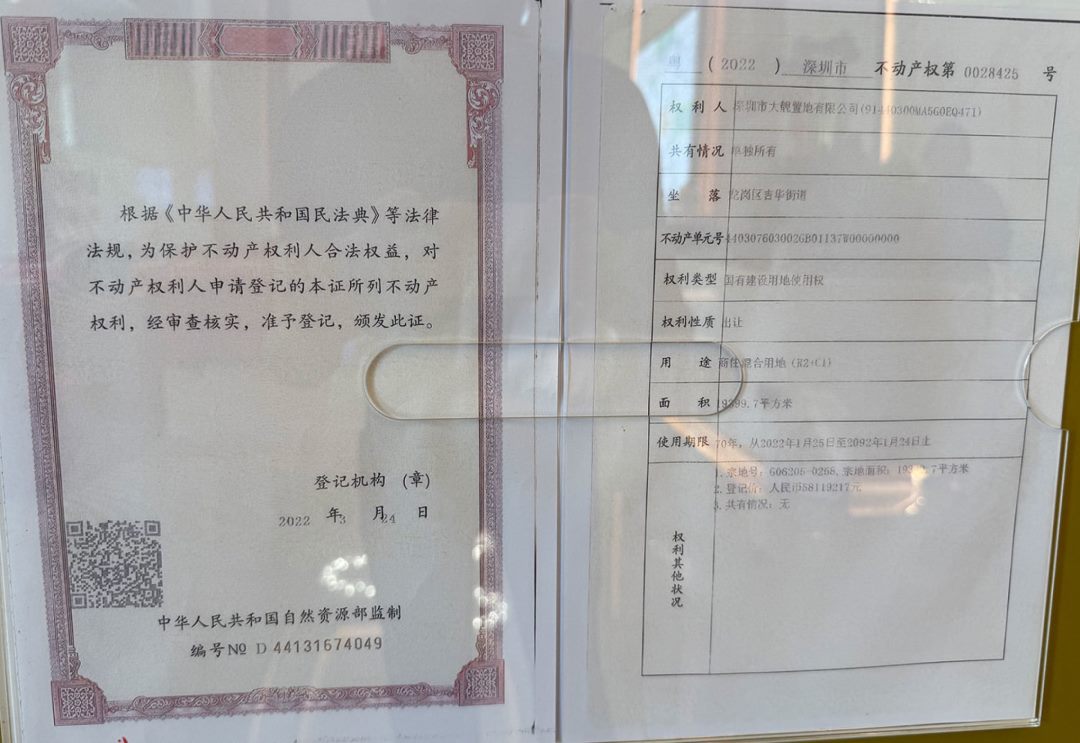 根据《中华人民共和国民法典》等法律
法规，为保护不动产权利人合法权益，对
不动产权利人申请登记的本证所列不动产
权利，经审查核实，准予登记，颁发此证。
登记机构 （章）
2022 年3 月24 日
中华人民共和国自然资源部监制
编号№ D 44131674049
（2022 ） 深圳市 不动产权第 0028425 号
权利人 深圳市大靓置地有限公司(91440300MA5G0EQ471)
共有情况 单独所有
坐落 龙岗区吉华街道
不动产单元号 440307603002GB01137W00000000
权利类型 国有建设用地使用权
权利性质 出让
用途 商住混合用地（R2+C1）
面积 19399.7平方米
使用期限 70年，从2022年1月25日至2092年1月24日止
权利其他状况
1.宗地号：G06205-0268,宗地面积：19399.7平方米
2.登记价：人民币58119217元
3.共有情况：无